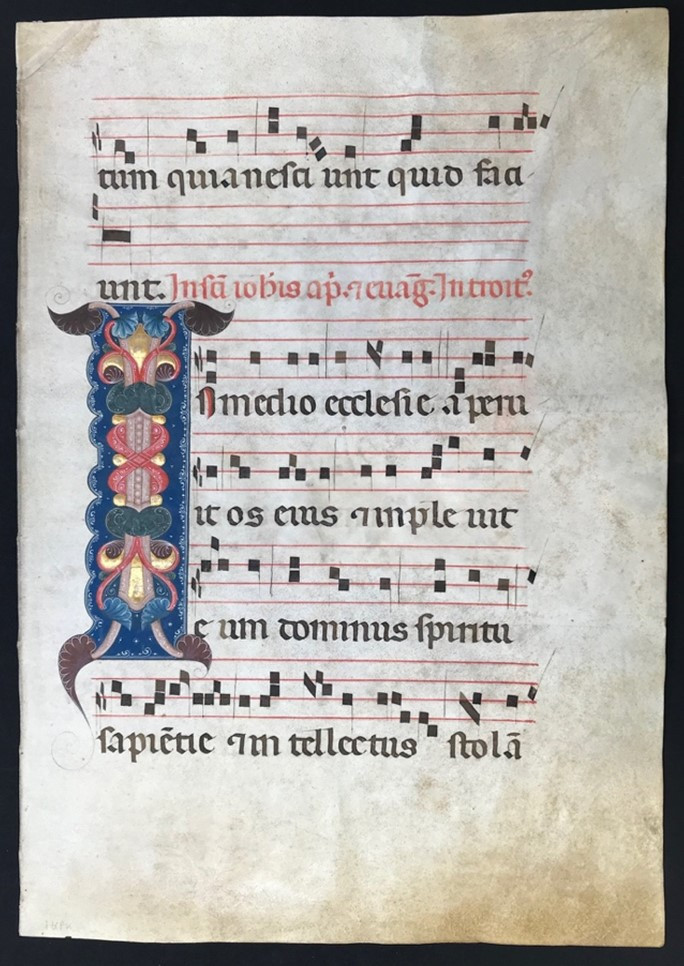 tum quia nesci unt quid faci
unt. In scī iohīs ap̄. ⁊ euāg̅. Introit᷒
In medio ecclesie aperu
it os eius ⁊ imple uit
e um dominus spiritu
sapiētie ⁊ in tellectus stolā